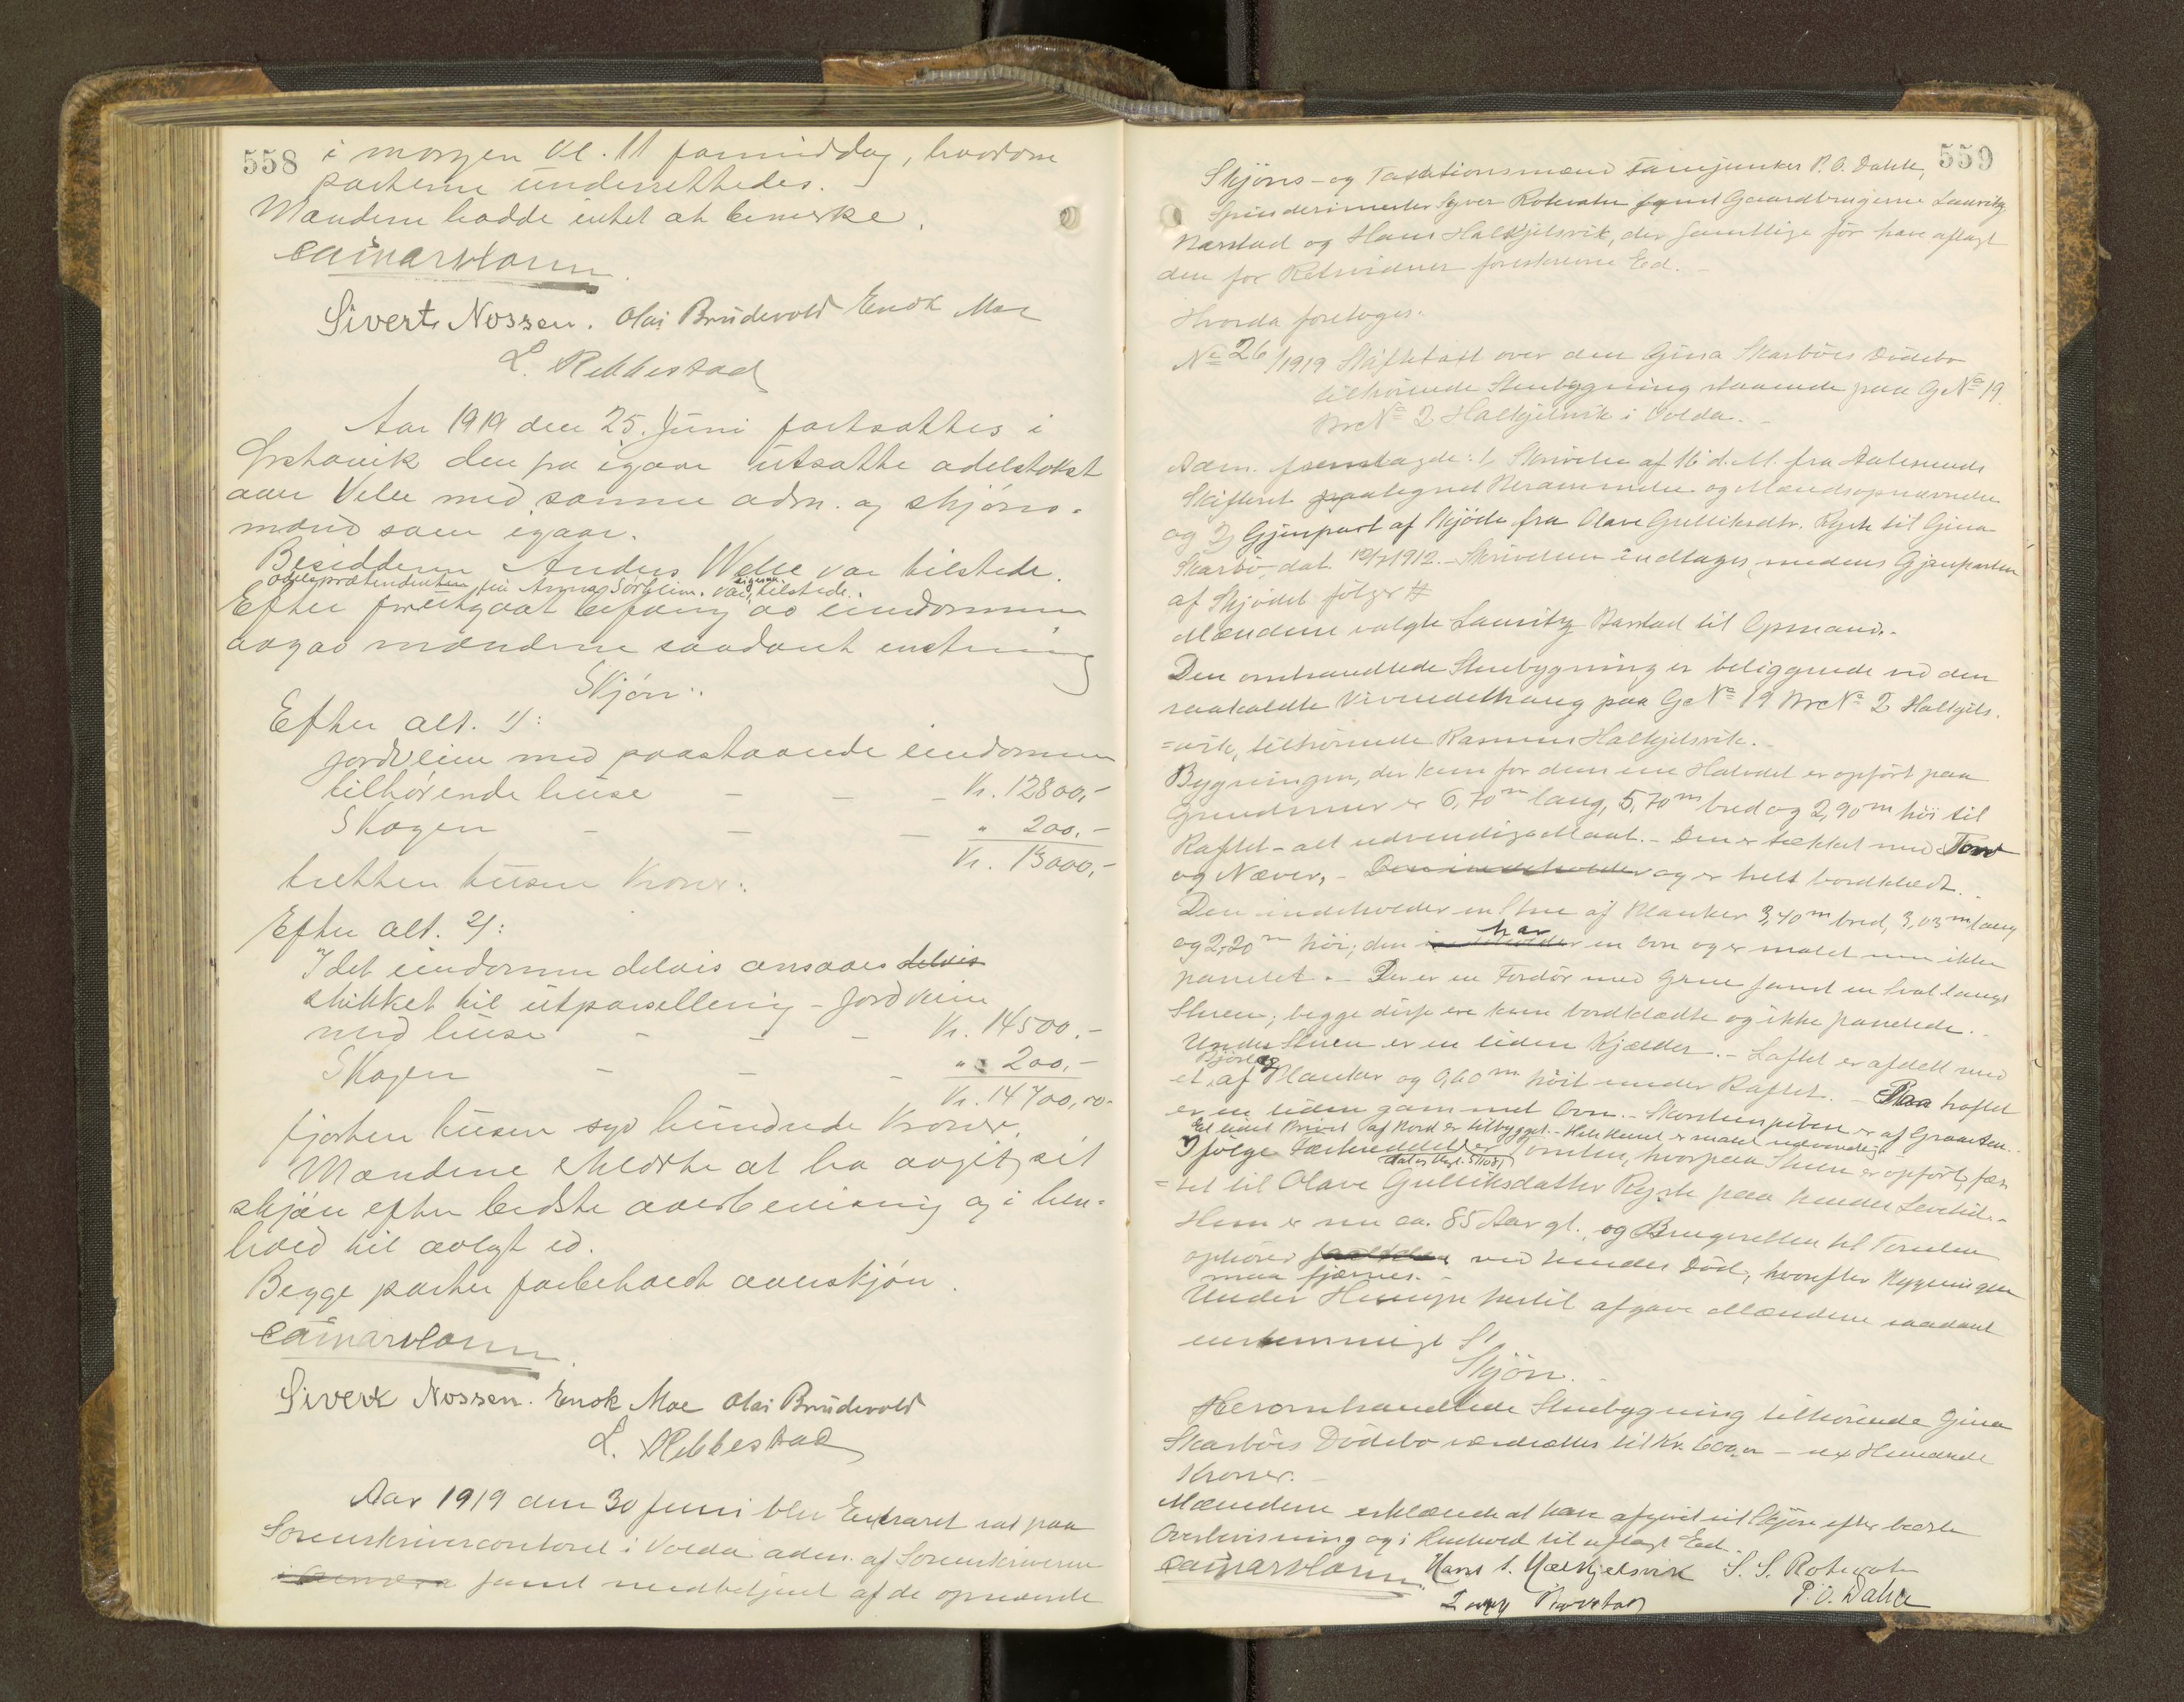 558
i morgen kl. 11 formiddag, hvorom
parterne underrettedes.
Mændene hadde intet at bemerke.
Sivert Nossen. Olai Brudevold Enok Moe
L. Rebbestad
Aar 1919 den 25. Juni fortsattes i
Ørstavik den fra igaar utsatte odelstakst
over Velle med samme adm. og skjøns-
mænd som igaar.
Besidderen Anders Welle var tilstede.
Odelsprætendenten fru Anna Sørheim var tilstede.
Efter foreutgaat befaring av eiendommen
avgav mændene saadant enstemmig
Skjøn:
Efter alt. 1):
Jordveien med paastaaende eiendommen
tilhørende huse - - - Kr. 12800,-
Skogen - - - " 200.-
Kr. 13000,-
tretten tusen Kroner.
Efter alt. 2):
Idet eiendommen delvis ansaaes delvis
skikket til utparsellering - Jordveien
med huse - - - Kr. 14500.-
Skogen - - - " 200,-
Kr. 14700,00.
fjorten tusen syv hundrede Kroner.
Mændene erklærte at ha avgit sit
skjøn efter bedste overbevisning og i hen-
hold til avlagt ed.
Begge parter forbeholdt overskjøn.
Sivert Nossen. Enok Moe Olai Brudevold
L. Rebbestad
Aar 1919 den 30 Juni blev Extraret sat paa
Sorenskrivercontoret i Volda adm. af Sorenskriveren
samt medbetjent af de opnævnte
559
Skjøns- og Taxationsmænd P. O. Dahle,
Spinderimester Syver Rotevatn samt Gaardbrugerne Lauritz
Barstad og Hans Halkjelsvik, der samtlige før have aflagt
den for Retsvidner foreskrevne Ed.-
Hvorda foretoges:
No 26/1919 Skiftetaxt over den Gina Skarbøs Dødsbo
tilhørende Stuebygning staaende paa G No 19
Br No 2 Halkjelsvik i Volda.-
Adm. fremlagde: 1, Skrivelse af 16 d.M. fra Aalesunds
Skifteret paategnet Berammelse og Mændsopnævnelse
og 2, Gjenpart af Skjøde fra Olave Gulliksdtr. Rysk til Gina
Skarbø, dat. 12/7 1912.- Skrivelsen indtages, medens Gjenparten
af Skjødet følger #
Mændene valgte Lauritz Barstad til Opmand.-
Den omhandlede Stuebygning er beliggende ved den
saakaldte Vivendelhaug paa G No 19 Br No 2 Halkjels-
=vik, tilhørende Rasmus Halkjelsvik.-
Bygningen, der kun for den ene Halvdel er opført paa
Grundmur er 6,70 m lang, 5,70 m bred og 2,90 m høi til
Raftet - alt udvendig Maal.- Den er tækket med Torv
og Næver,- Den indeholder og er helt bordklædt.
Den indeholder en Stue af Planker 3,40 m bred, 3,03 m lang
og 2,20 m høi; den har en Ovn og er malet men ikke
panelet.- Der er en Fordør med Grue samt en Sval langs
Stuen; begge disse ere kun bordklædte og ikke panelede.-
Under Stuen er en liden Kjælder.- Loftet er afdelt med
et Bjørelag af Planker og 0,60 m høit under Raftet.- Paa Loftet
er en liden gammel Ovn.- Skorstenspiben er af Graasten.
Ifølge Fæsteseddel er Tomten, hvorpaa Stuen er opført, fæs
=tet til Olave Gulliksdatter Rysk paa hendes Levetid.-
Hun er nu ca. 85 Aar gl. og Brugsretten til Tomten
ophører ved hendes Død, hvorefter Bygningen
maa fjærnes.-
Under Hensyn hertil afgave Mændene saadant
enstemmigt
Skjøn.
Heromhandlede Stuebygning tilhørende Gina
Skarbøs Dødsbo værdsættes til Kr. 600,00 - sex Hundrede
Kroner.-
Mændene erklærede at have afgivet sit Skjøn efter bedste
Overbevisning og i Henhold til aflagt Ed.
Hans S. Halkjelsvik S. S. Rotevatn
P. O. Dahle